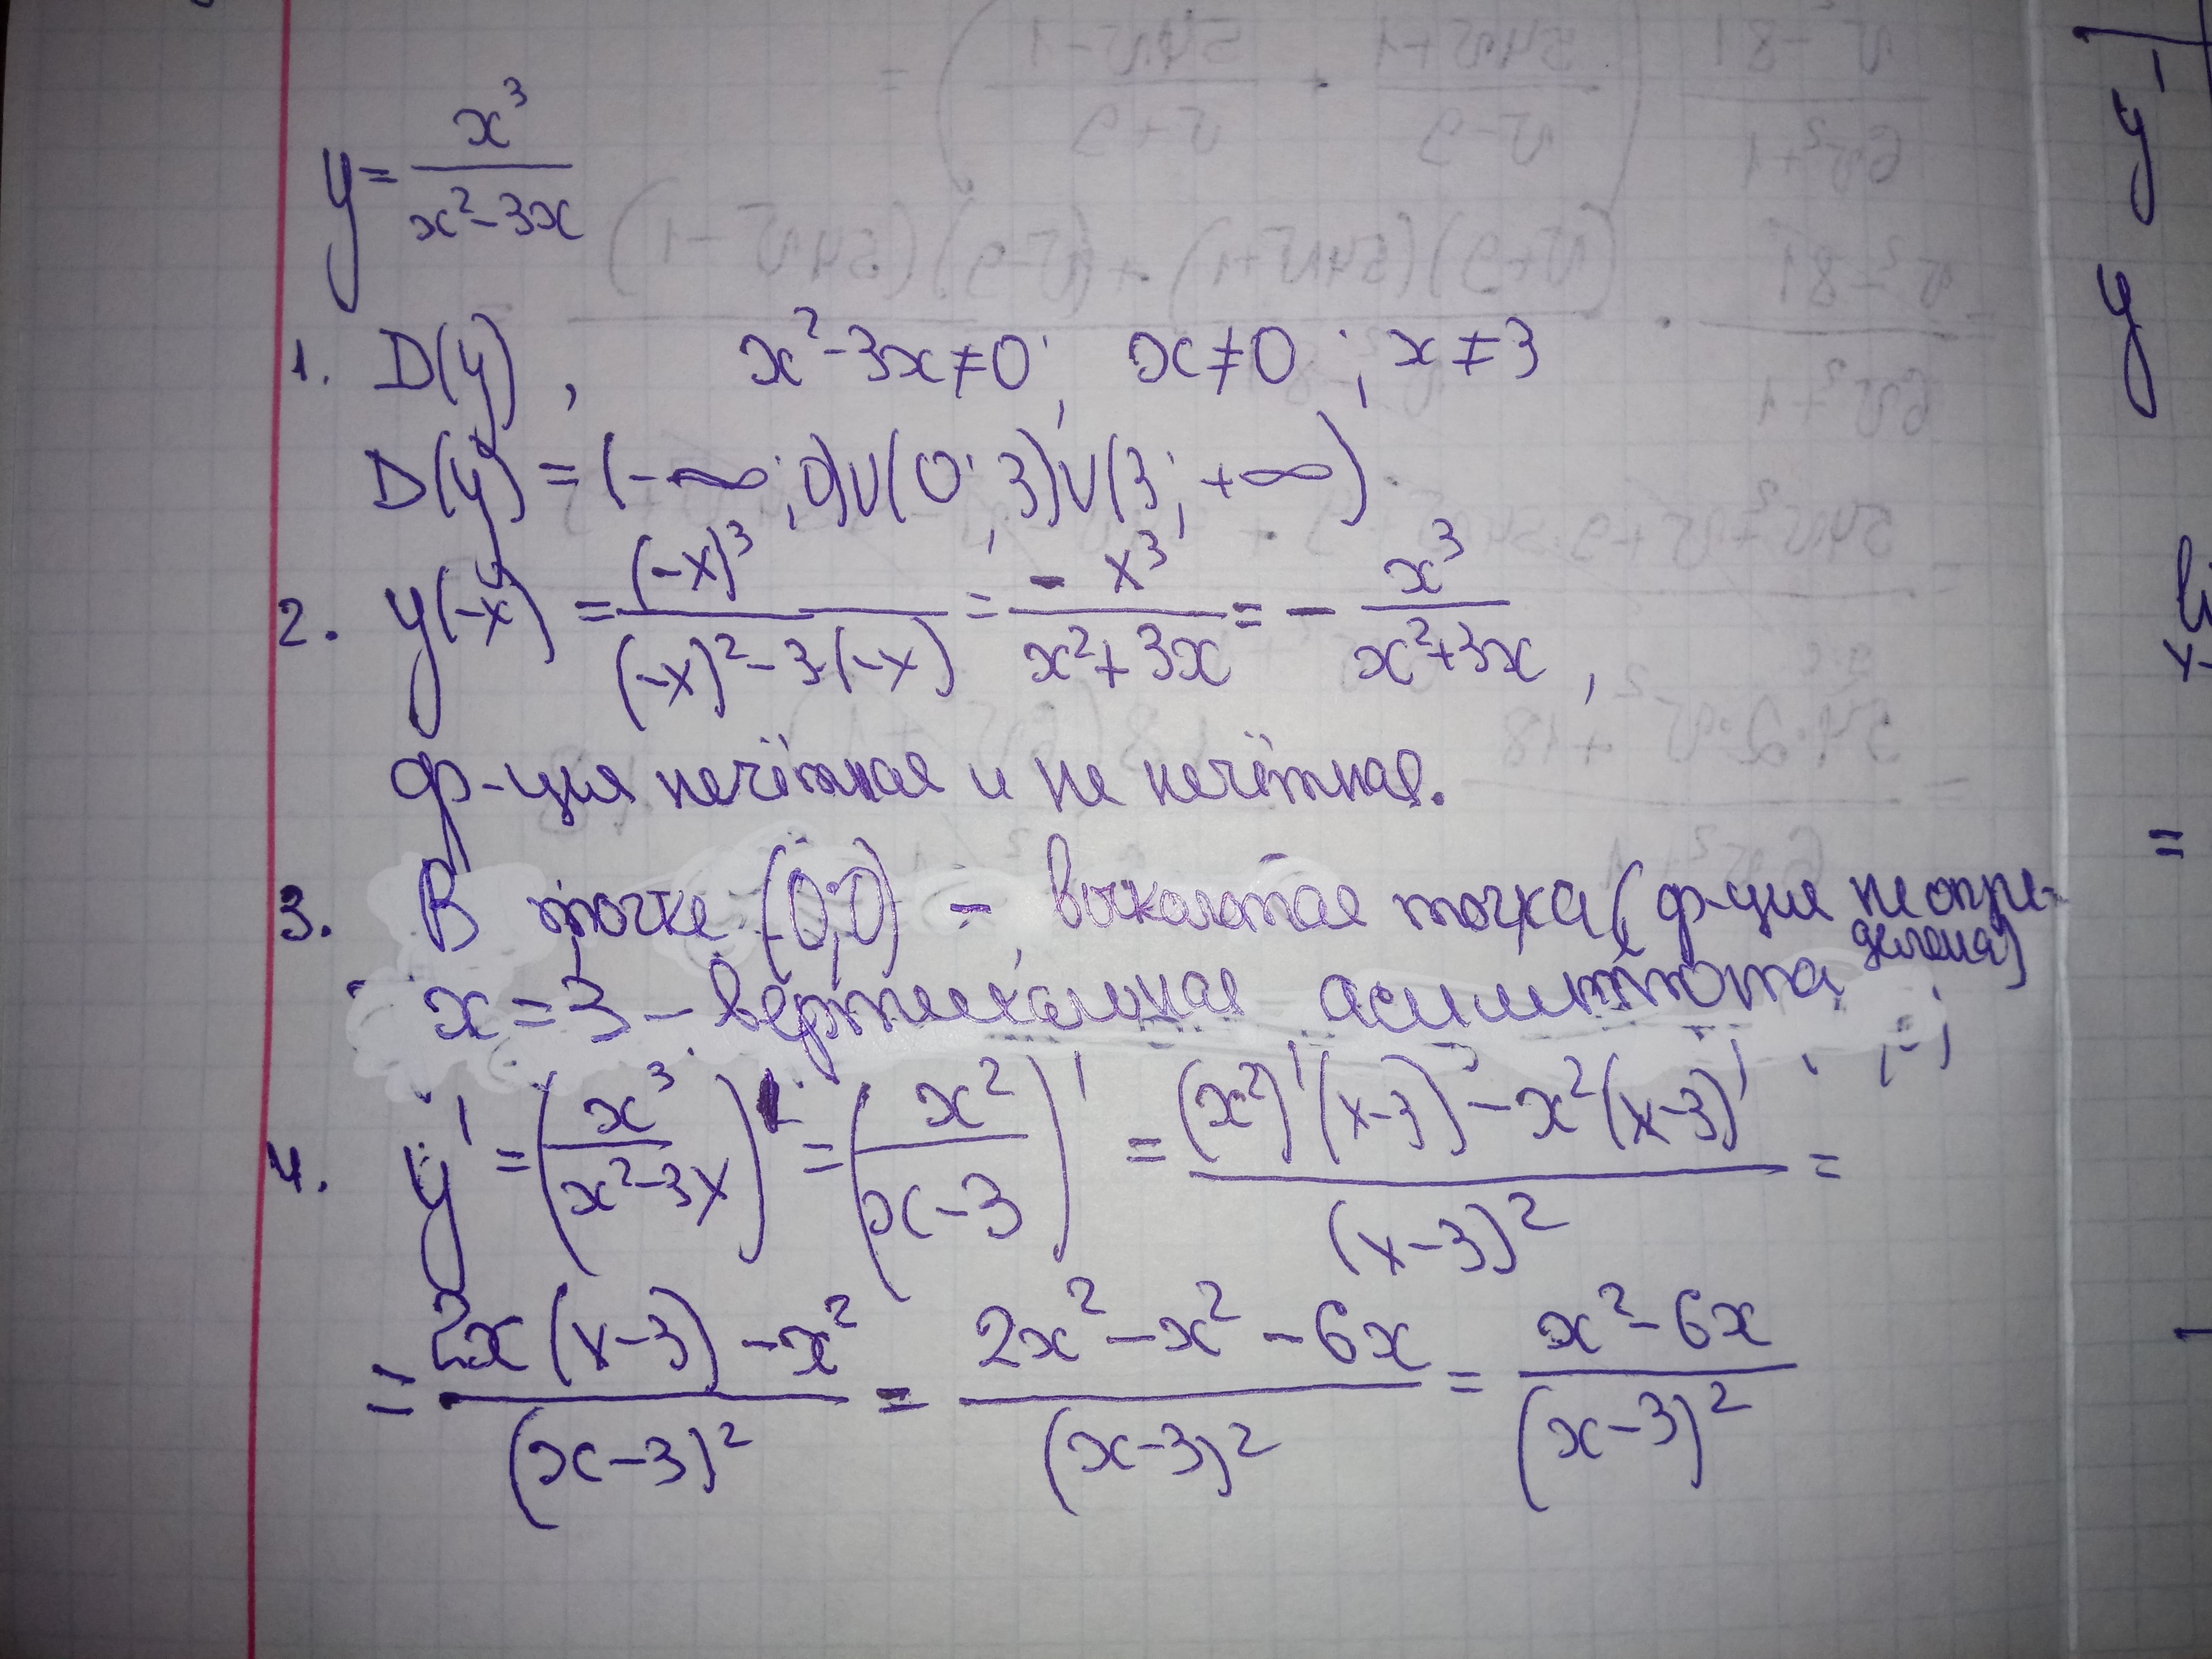 y = x³/(x²-3x)
1. D(y), x²-3x≠0; x≠0; x≠3
D(y) = (-∞; 0)∪(0; 3)∪(3; +∞)
2. y(-x) = (-x)³/((-x)²-3·(-x)) = -x³/(x²+3x) = - x³/(x²+3x),
ф-ция нечётная и не нечётная.
3. В точке (0;0) - выколотая точка (ф-ция не опре-
делена)
x = 3 - вертикальная асимптота
4. y' = (x³/(x²-3x))' = (x²/(x-3))' = ((x²)'(x-3) - x²(x-3)')/(x-3)² =
= (2x(x-3) - x²)/(x-3)² = (2x² - x² - 6x)/(x-3)² = (x² - 6x)/(x-3)²
y'
y
=